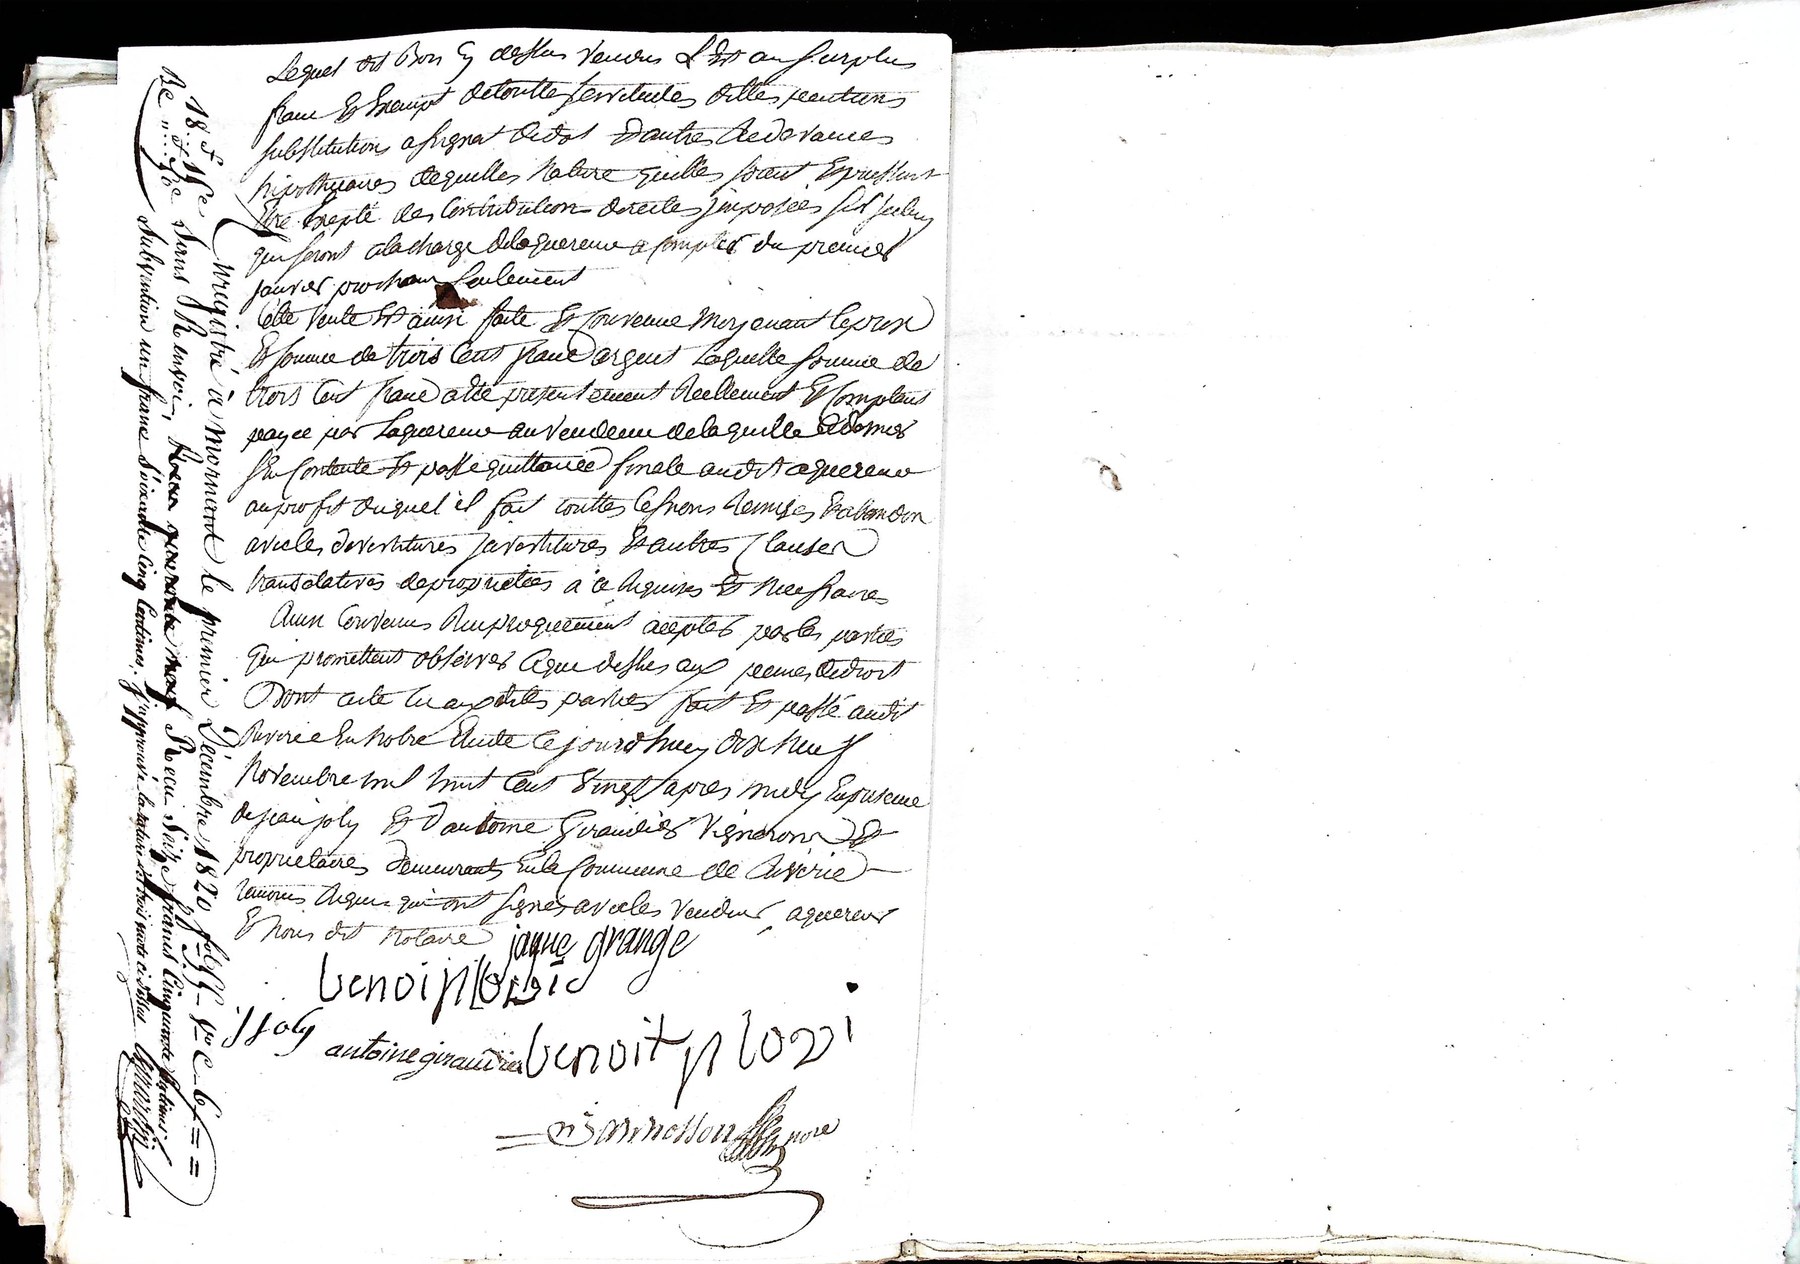 Lequel dit Bois Cy dessus vendus Est au surplus
franc Et Exempt de touttes servitudes dittes pentions
substitutions a signat de dot d'autres Redevances
hipothecaires de quelles Nature quelles soient Et puissent
Etre Excepté des Contributions directes jmposées sus jceluy
qui seront a la charge de laquereur a Compter du premier
janvier prochain seulement
Cette vente Est ainsi faite Et Convenue Moyenant le prix
Et somme de trois Cent franc argent Laquelle somme de
trois Cent franc a été presentement Réellement Et Comptant
payée par Laquereur au vendeur de laquelle Ce dernier
s'En Contente Et passe quittance finale audit aquereur
au profit duquel il fait touttes les Remises Et abandon
avec les devestitures jnvestitures Et autres Clauses
translatives de proprietées à ce Requises Et Necessaires
Ainsi Convenus Reciproquement acceptes par les parties
qui promettent observer Ce que dessus aux peines de droit
Dont acte lu auxdittes parties fait Et passé audit
Riverie En Notre Etude Ce jourd'huy dix Neuf
Novembre mil huit Cent Vingt apres midy En presence
de jean joly Et d'antoine Giraudier Vignerons Et
proprietaires demeurants En la Commune de Riverie
temoins Requis qui ont signés avec les vendeur, aquereur
Et Nous dit Notaire jaque grange
benoi
jjoly
antoine giraudier benoit
nore
Enregistré à Mornant le premier Décembre 1820 f° 55 v° C. 6
18 f 15 c
Be.. 50 sans Renvoi, Reçu Seize francs Cinquante Centimes
Subvention un franc Soixante Cinq Centimes. J'approuve la rature de trois mots ci-dessus